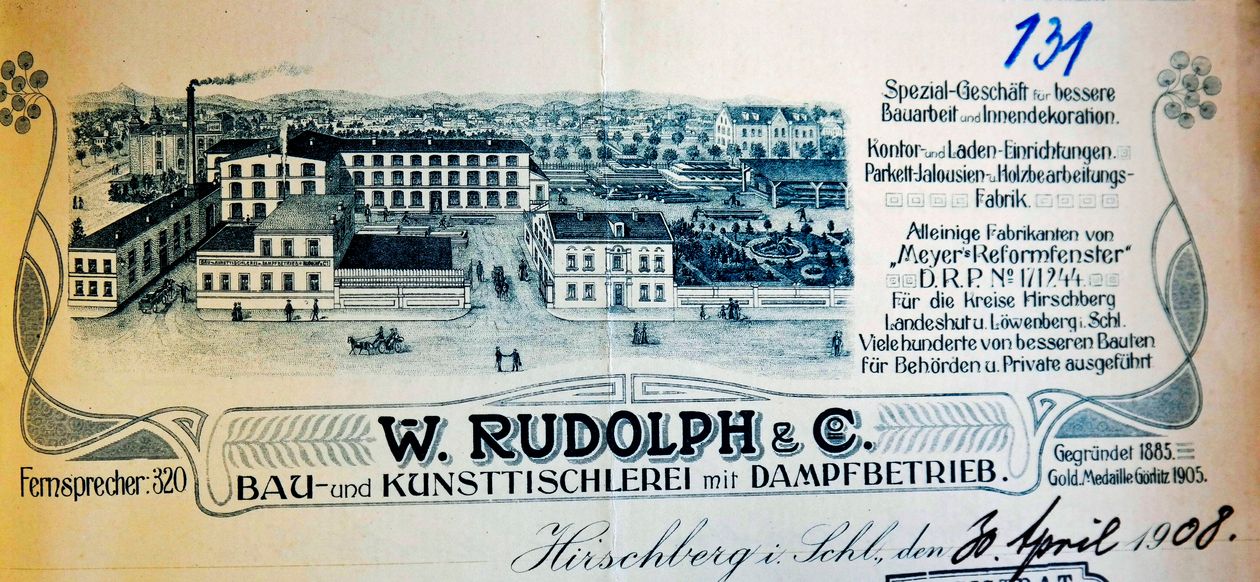 131
Spezial-Geschäft für bessere
Bauarbeit und Innendekoration.
Kontor- und Laden-Einrichtungen.
Parkett-Jalousien- u. Holzbearbeitungs-
Fabrik.
Alleinige Fabrikanten von
„Meyer's Reformfenster"
D.R.P. No 171244.
Für die Kreise Hirschberg
Landeshut u. Löwenberg i. Schl.
Viele hunderte von besseren Bauten
für Behörden u. Private ausgeführt
W. RUDOLPH & Co.
BAU- und KUNSTTISCHLEREI mit DAMPFBETRIEB.
Fernsprecher: 320
Gegründet 1885.
Gold. Medaille Görlitz 1905.
Hirschberg i. Schl., den 30. April 1908.